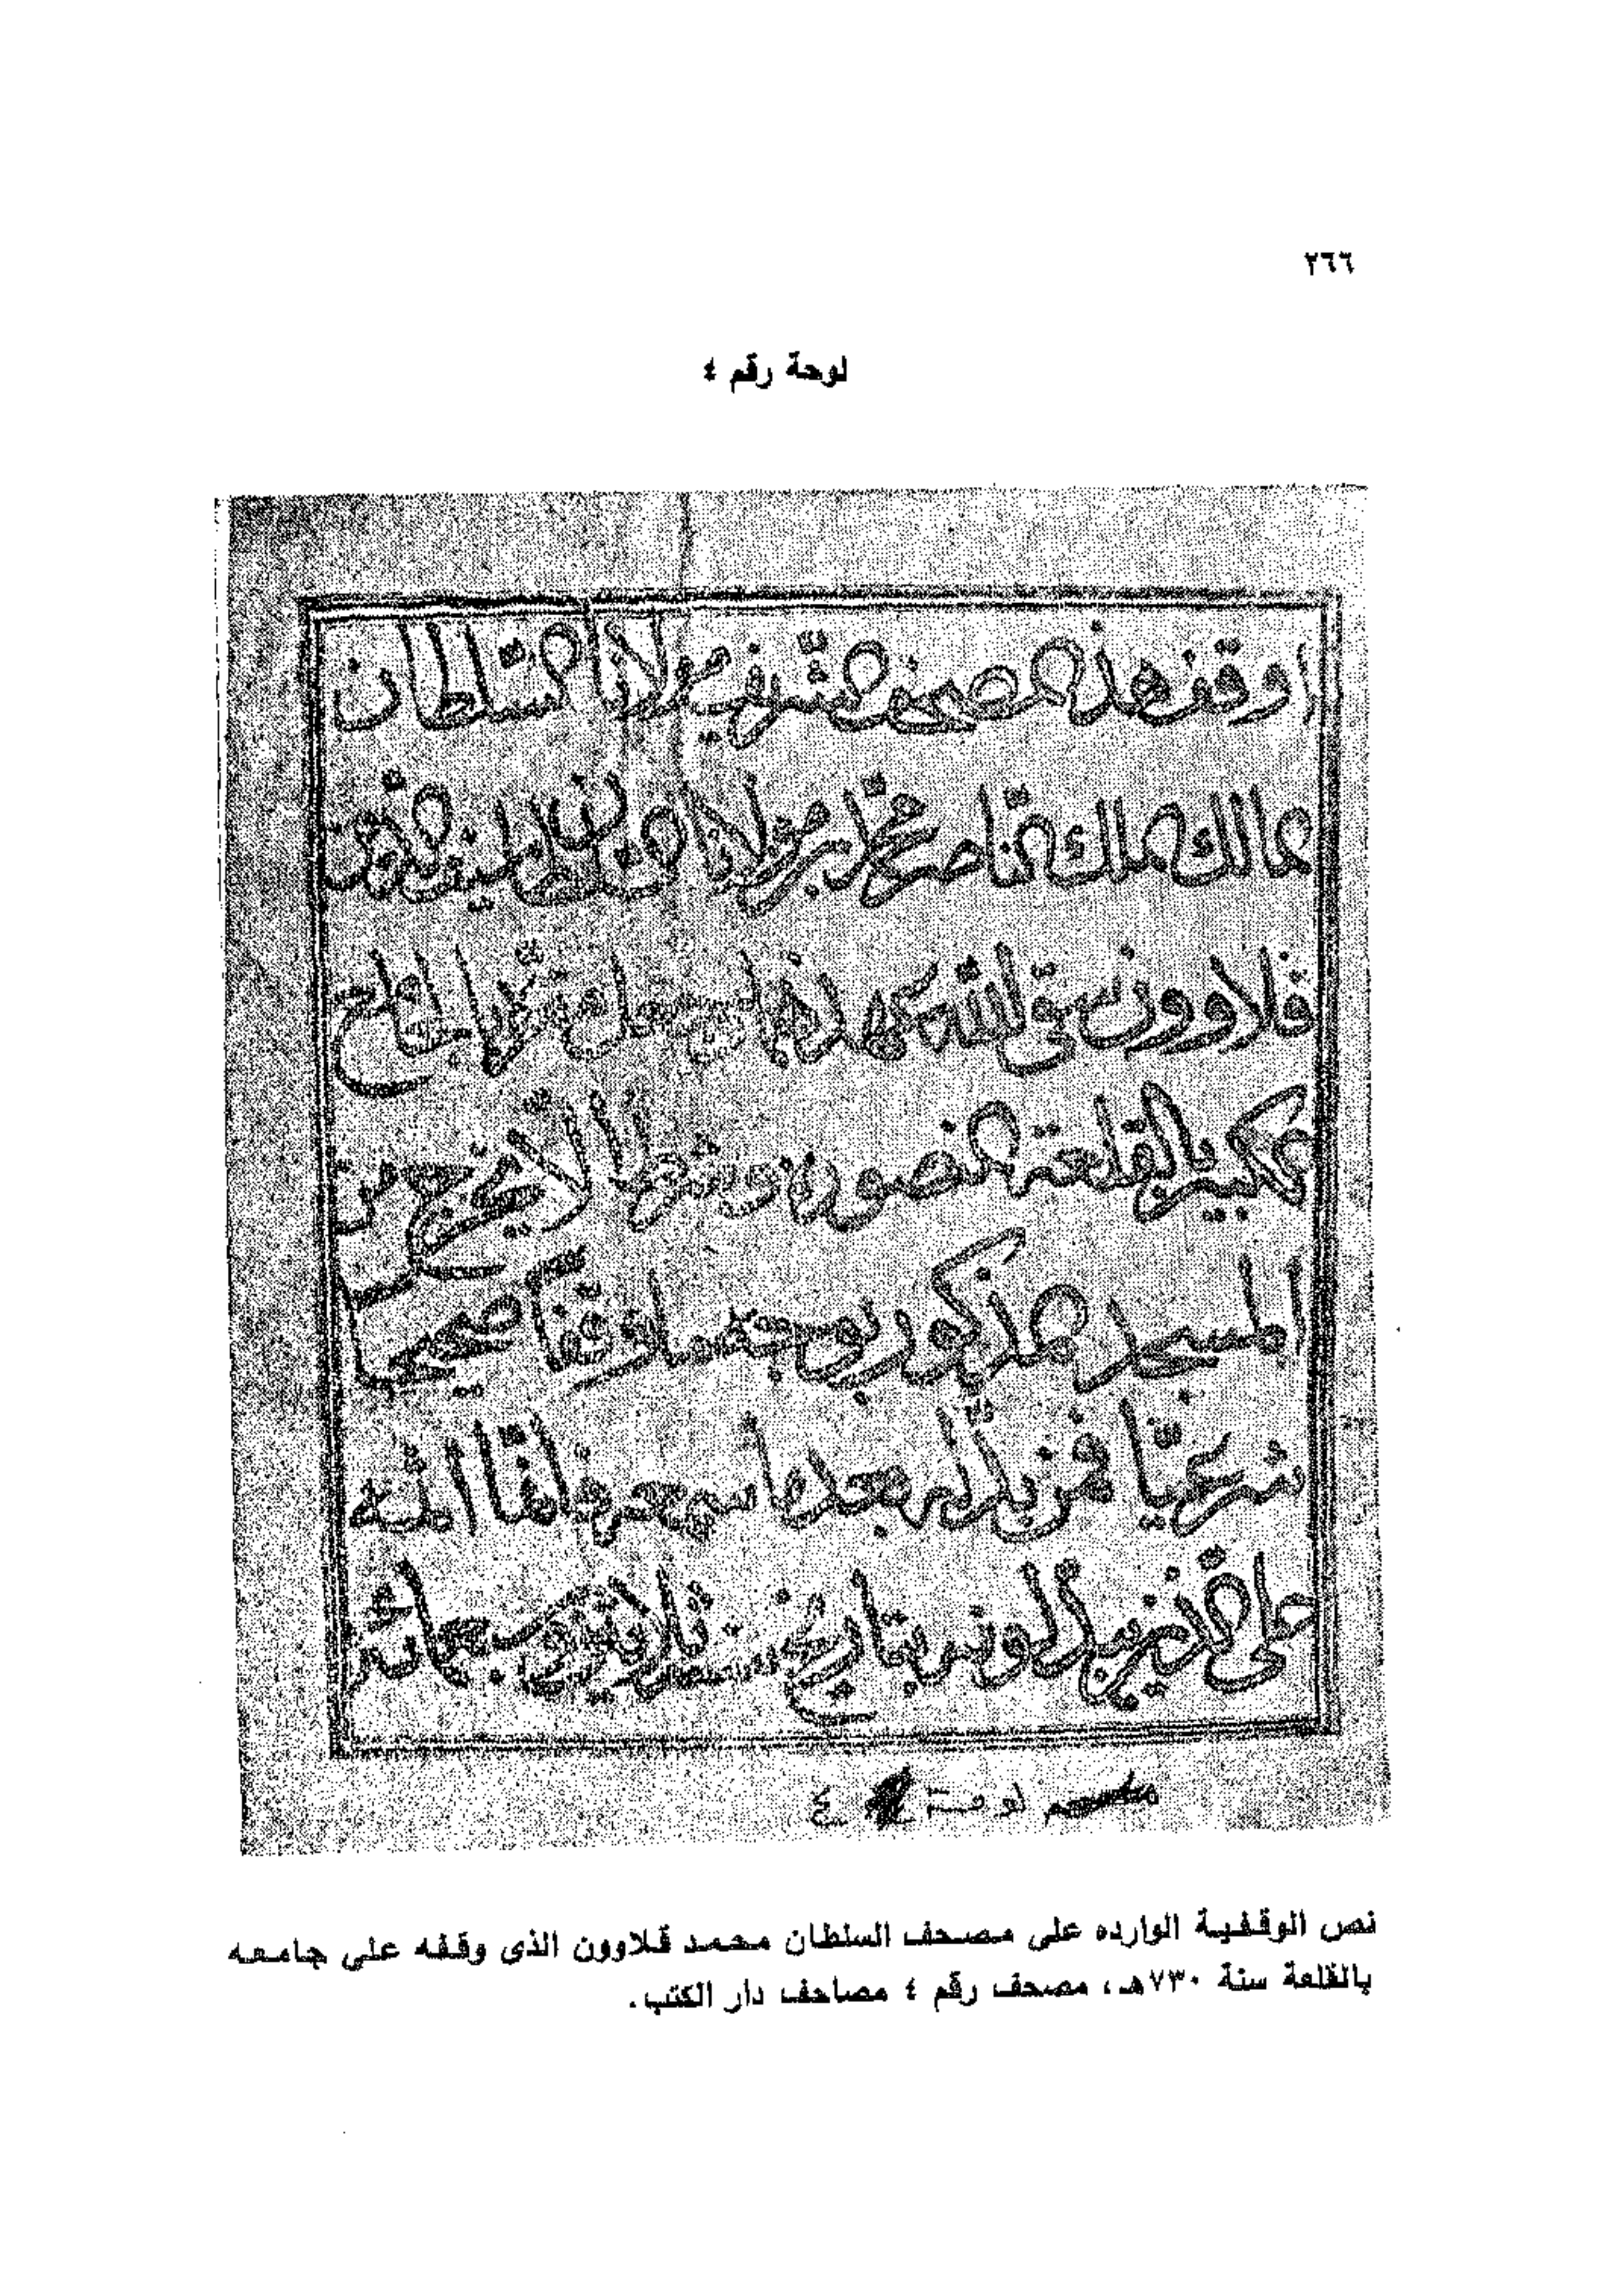 ٢٦٦
لوحة رقم ٤
اوقف هذ المصحف الشريف مولانا السلطان
المالك الملك الناصر محمد بن مولانا السلطان الملك المنصور
قلاوون سقى الله عهده الجامع
الكبير بالقلعة المنصورة بشرط ان لا يخرج من
المسجد المذكور بوجه وقفا صحيحا
شرعيّا فمن بدّله بعد ما سمعه فانما اثمه
على الذين يبدلونه بتاريخ سنة ثلاثين وسبعمائة
لوحة ٤
نص الوقفية الوارده على مصحف السلطان محمد قلاوون الذى وقفه على جامعه
بالقلعة سنة ٧٣٠هـ، مصحف رقم ٤ مصاحف دار الكتب.